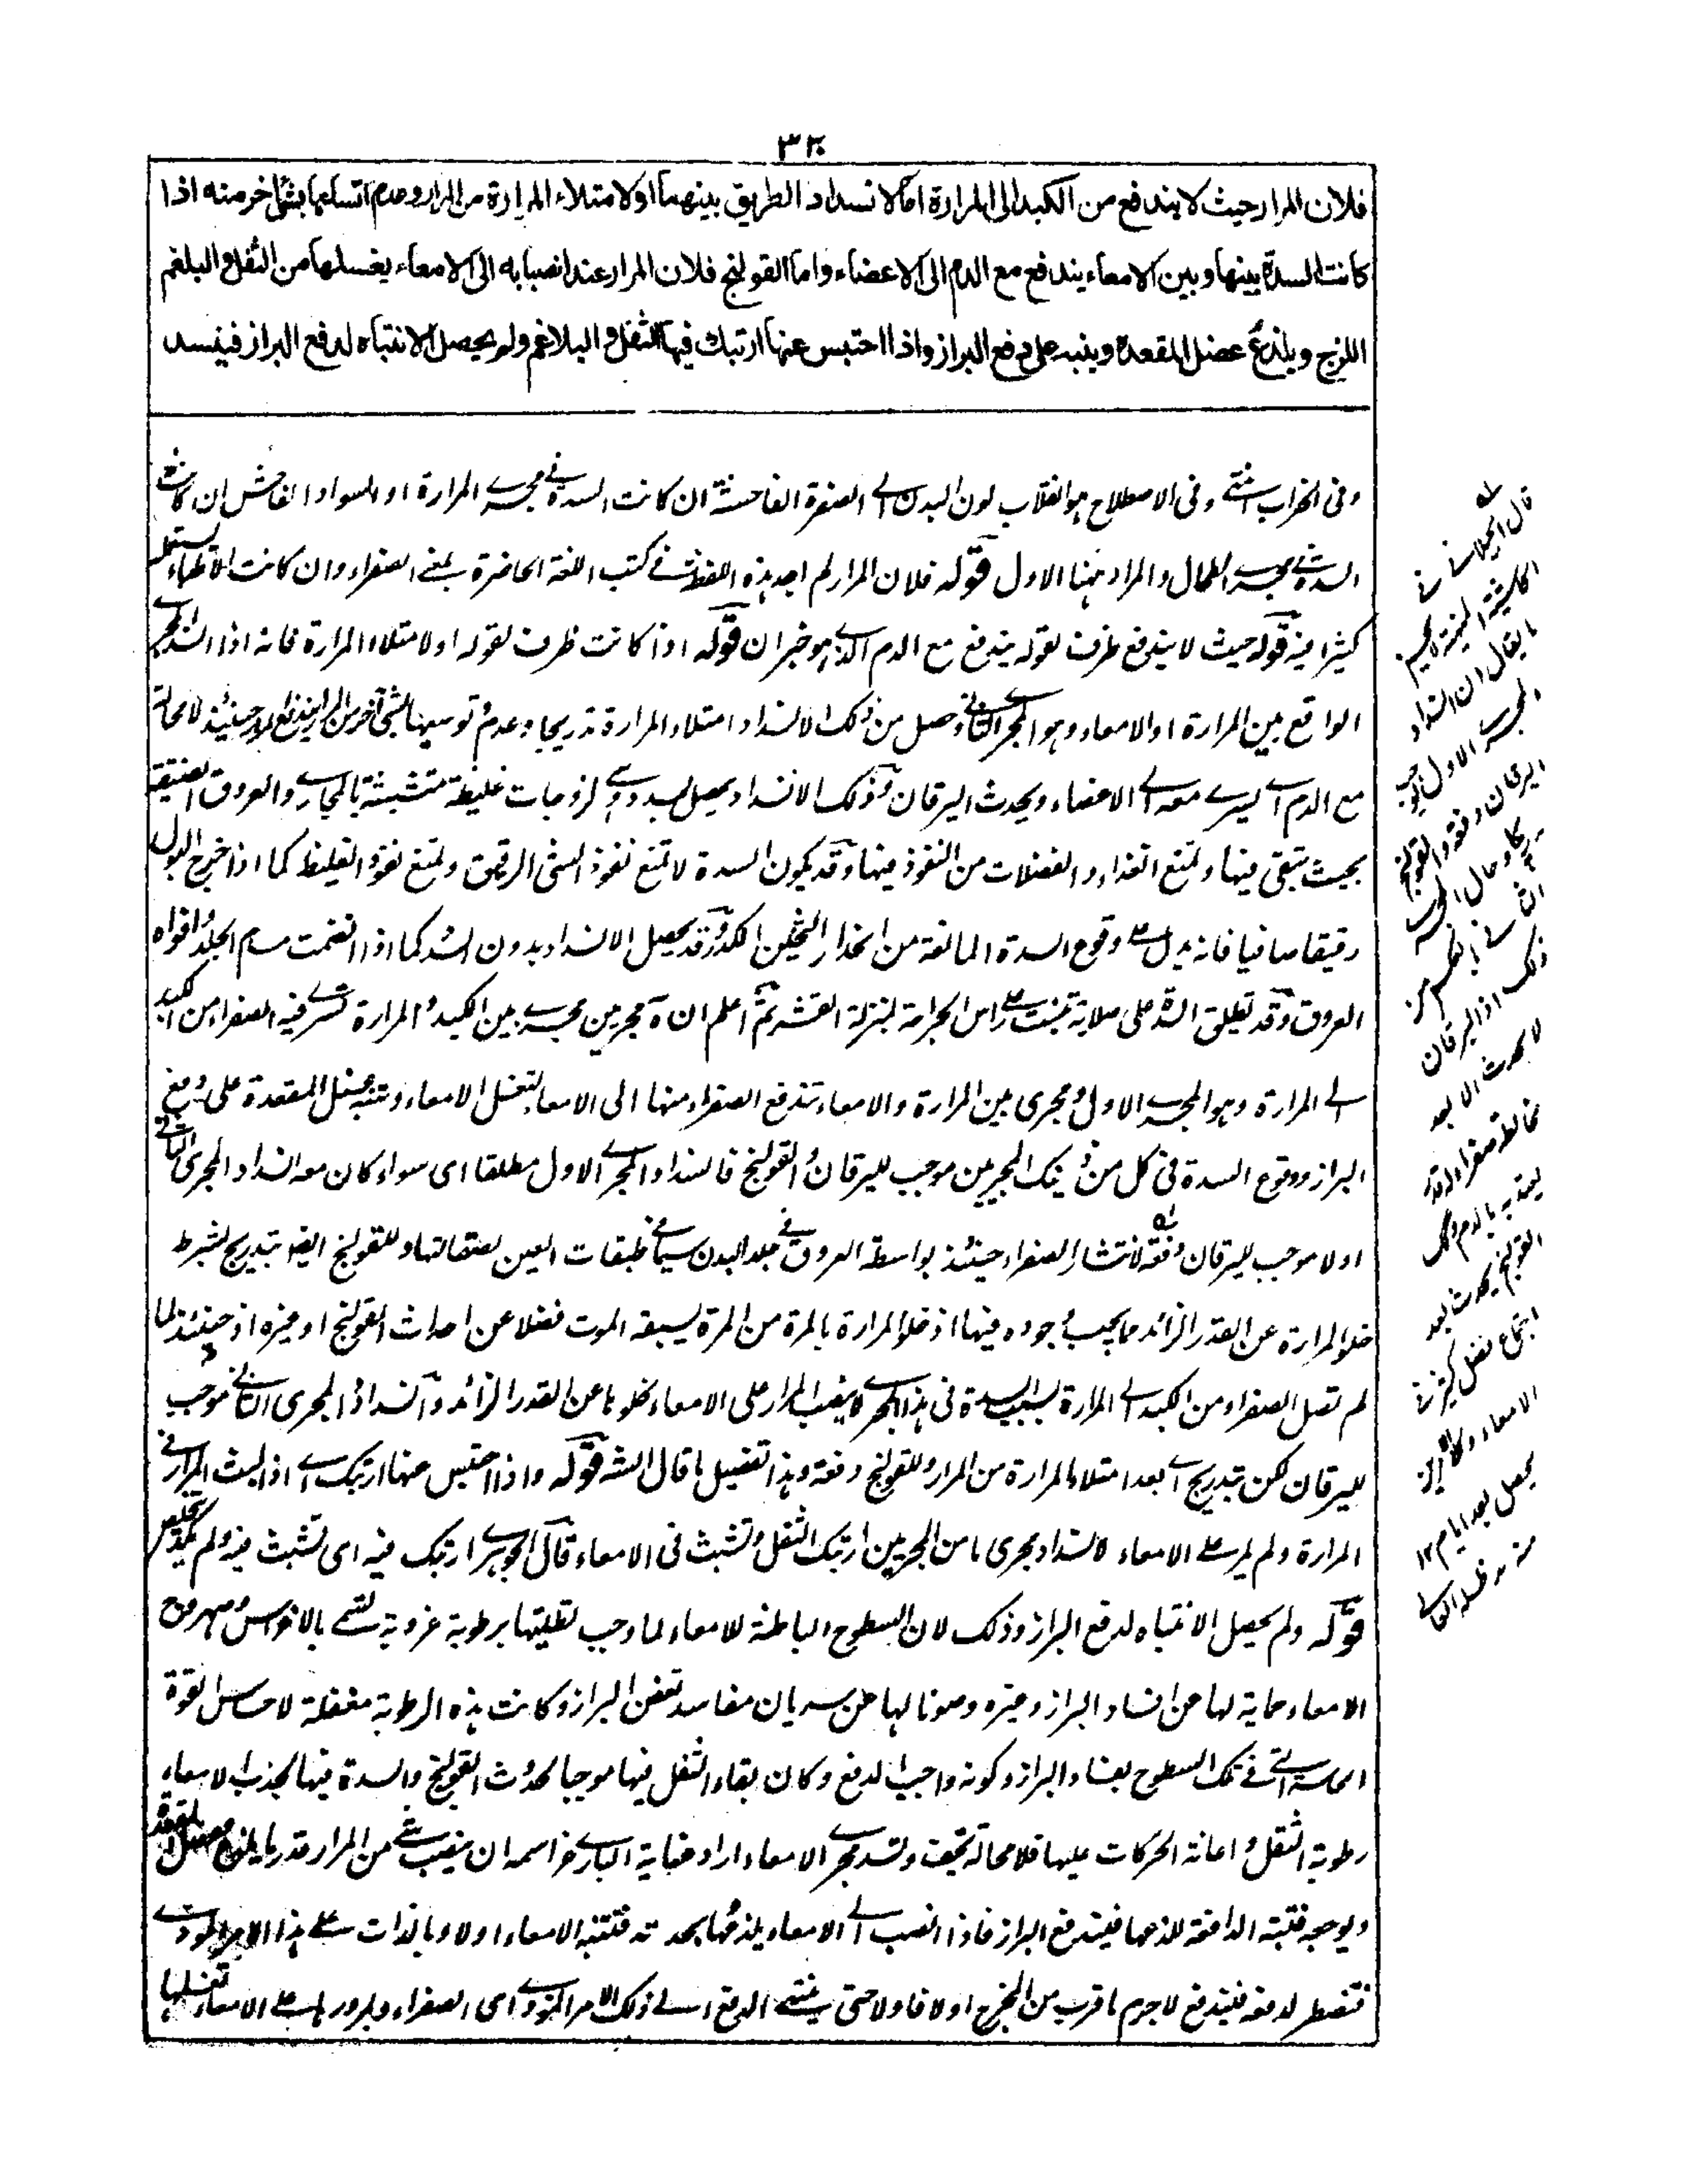 فلان المرار حيث لا يندفع من الكبد الى المرارة اما لانسداد الطريق بينهما او لامتلاء المرارة من المرار وعدم اتساعها بشئ اخر منه اذا
كانت السدة بينها وبين الامعاء يندفع مع الدم الى الاعضاء واما القولنج فلان المرار عند انصبابه الى الامعاء يغسلها من الثفل والبلغم
اللزج ويلذع عضل المقعدة وينبه على دفع البراز واذا احتبس عنها ارتبك فيها الثفل والبلاغم ولم يحصل الانتباه لدفع البراز فينسد
وفى الاصطلاح هو انقلاب لون البدن الے الصفرة الفاحشة ان كانت السدة فے مجرے المرارة او السواد الفاحش ان كانت
السدة فے مجرے الطحال والمراد ههنا الاول قوله فلان المرار لم اجد هذه اللفظة فے كتب اللغة الحاضرة بمعنے الصفراء وان كانت الاطباء تستعمله
كثيرا فيه قوله حيث لا يندفع ظرف لقوله يندفع مع الدم الذے هو خبر ان قوله اذا كانت ظرف لقوله او لامتلاء المرارة فانه اذا انسد المجرے
الواقع بين المرارة او الامعاء وهو المجرے الثانے وحصل من ذلك الانسداد امتلاء المرارة تدريجا وعدم توسيعها لشئ آخر من المرار يندفع المرار حينئذ لا محالة
مع الدم اے يسرے معه الے الاعضاء ويحدث اليرقان وذلك الانسداد يحصل بسدد وهے لزوجات غليظة متشبثة بالمجارے والعروق الضيقة
بحيث تبقى فيها وتمنع الغذاء والفضلات من النفوذ فيها وقد يكون السدة لا تمنع نفوذ الشئ الرقيق وتمنع نفوذ الغليظ كما اذا خرج البول
رقيقا صافيا فانه يدل علے وقوع السدة المانعة من انحدار الثخين الكدر وقد يحصل الانسداد بدون السدد كما اذا انضمت مسام الجلد وافواه
العروق وقد تطلق السدة على صلابة تنبت علے راس الجراحة بمنزلة القشر ثم اعلم ان مجريين مجرے بين الكبد والمرارة تسرے فيه الصفراء من الكبد
الے المرارة وهو المجرے الاول ومجرى بين المرارة والامعاء تندفع الصفراء منها الى الامعاء لتغسل الامعاء وتنبه عضل المقعدة على دفع
البراز ووقوع السدة فى كل من ذينك المجريين موجب لليرقان والقولنج فانسداد المجرے الاول مطلقا اى سواء كان معه انسداد المجرى الثانے
او لا موجب لليرقان دفعة لانتشار الصفراء حينئذ بواسطة العروق فے جلد البدن سيما فے طبقات العين لصقالتها وللقولنج ايضا بتدريج بشرط
خلو المرارة عن القدر الزائد مما يجب وجوده فيها اذ خلو المرارة بالمرة من المرة يسبقه الموت فضلا عن احداث القولنج او غيره اذ حينئذ لما
لم تصل الصفراء من الكبد الے المرارة بسبب السدة فى هذا المجرے لا ينصب المرار على الامعاء لخلوها عن القدر الزائد وانسداد المجرى الثانے موجب
لليرقان لكن بتدريج اے بعد امتلاء المرارة من المرار وللقولنج دفعة وهذا تفصيل ما قال الشه قوله واذا احتبس عنها ارتبك اے اذا لبث المرار فے
المرارة ولم يمر علے الامعاء لانسداد مجرى ما من المجريين ارتبك الثفل وتشبث فى الامعاء قال الجوهرے ارتبك فيه اى تشبث فيه ولم يكد يتخلص
قوله ولم يحصل الانتباه لدفع البراز وذلك لان السطوح الباطنة للامعاء لما وجب تطليتها برطوبة غروية تسمے بالاغراس وصهروج
الامعاء حماية لها عن افساد البراز وغيره وصونا لها عن سريان مفاسد تعفن البراز وكانت هذه الرطوبة مغفلة لاحساس القوة
الحاسة التے فے تلك السطوح بفساد البراز وكونه واجب الدفع وكان بقاء الثفل فيها موجبا لحدوث القولنج والسدة فيها لجذب الامعاء
رطوبة الثفل واعانة الحركات عليها فلا محالة تجف وتسد مجرے الامعاء اراد عناية البارے عز اسمه ان ينصب شئے من المرار قدر ما يلذع عضل المقعدة
ويوجعه فتنبه الدافعة للذعها فيندفع البراز فاذا انصب الے الامعاء يلذعها بحدته فتنتبه الامعاء اولا وبالذات علے هذا الامر الموذے
فتضطر لدفعه فيندفع لا جرم ما قرب من المخرج اولا فاولا حتى ينتهے الدفع الے ذلك الامر الموذے اى الصفراء ومرورها علے الامعاء تغسلها
قال الجيلانے فے
يقال ان انسداد
المجرے الاول يوجب
اليرقان دفعة والقولنج
لا يحدث الا بعد
القولنج يحدث بعد
اجتماع ثفل كثير فے
يحصل بعد ايام ١٢
منه مد ظله العالے